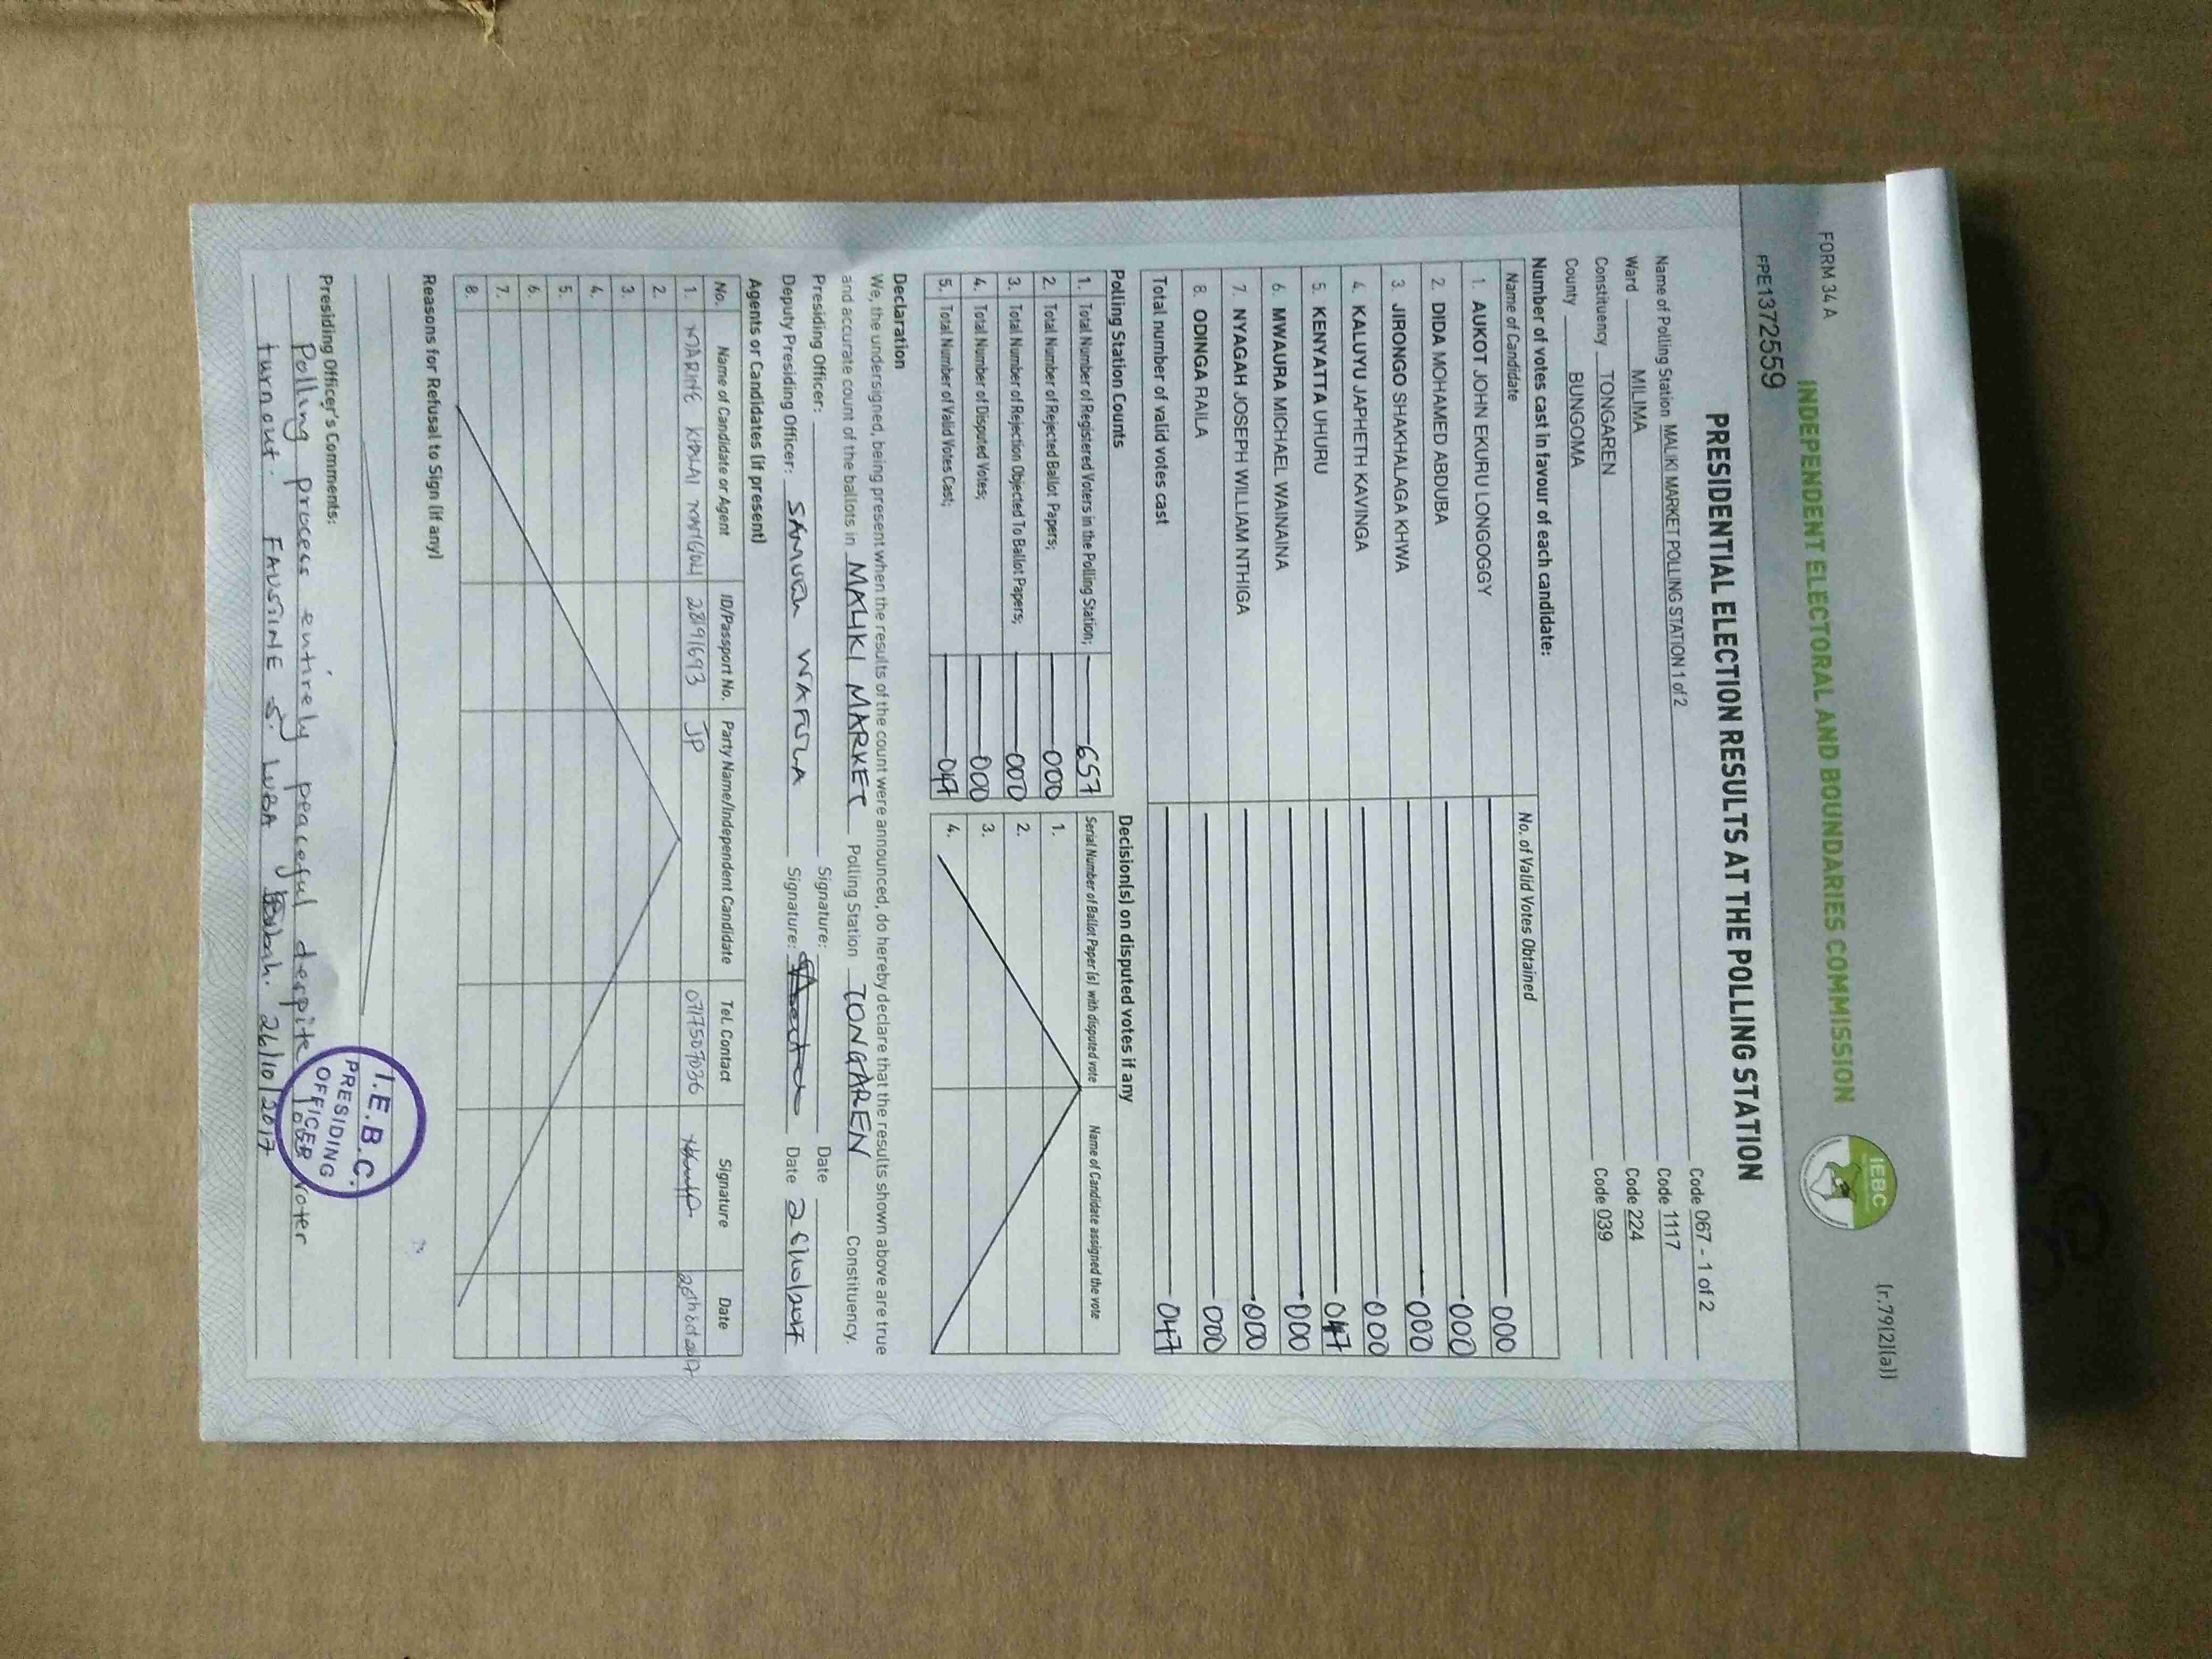 FORM 34 A
(r.79(2)(a))
INDEPENDENT ELECTORAL AND BOUNDARIES COMMISSION
IEBC
FPE1372559
PRESIDENTIAL ELECTION RESULTS AT THE POLLING STATION
Name of Polling Station MALIKI MARKET POLLING STATION 1 of 2 Code 067 - 1 of 2
Ward MILIMA Code 1117
Constituency TONGAREN Code 224
County BUNGOMA Code 039
Number of votes cast in favour of each candidate:
Name of Candidate No. of Valid Votes Obtained
1. AUKOT JOHN EKURU LONGOGGY 000
2. DIDA MOHAMED ABDUBA 000
3. JIRONGO SHAKHALAGA KHWA 000
4. KALUYU JAPHETH KAVINGA 000
5. KENYATTA UHURU 047
6. MWAURA MICHAEL WAINAINA 000
7. NYAGAH JOSEPH WILLIAM NTHIGA 000
8. ODINGA RAILA 000
Total number of valid votes cast 047
Polling Station Counts Decision(s) on disputed votes if any
1. Total Number of Registered Voters in the Polling Station; 657 Serial Number of Ballot Paper (s) with disputed vote Name of Candidate assigned the vote
2. Total Number of Rejected Ballot Papers; 000 1.
3. Total Number of Rejection Objected To Ballot Papers; 000 2.
4. Total Number of Disputed Votes; 000 3.
5. Total Number of Valid Votes Cast; 047 4.
Declaration
We, the undersigned, being present when the results of the count were announced, do hereby declare that the results shown above are true
and accurate count of the ballots in MALIKI MARKET Polling Station TONGAREN Constituency.
Presiding Officer: Signature: Date
Deputy Presiding Officer: SAMUEL WAFULA Signature: Date 26/10/2017
Agents or Candidates (if present)
No. Name of Candidate or Agent ID/Passport No. Party Name/Independent Candidate Tel. Contact Signature Date
1. 28191693 JP 0717507036 26th oct 2017
2.
3.
4.
5.
6.
7.
8.
Reasons for Refusal to Sign (if any)
Presiding Officer's Comments:
Polling process entirely peaceful despite low voter
turnout. FAUSINE S. 26/10/2017
I.E.B.C.
PRESIDING
OFFICER